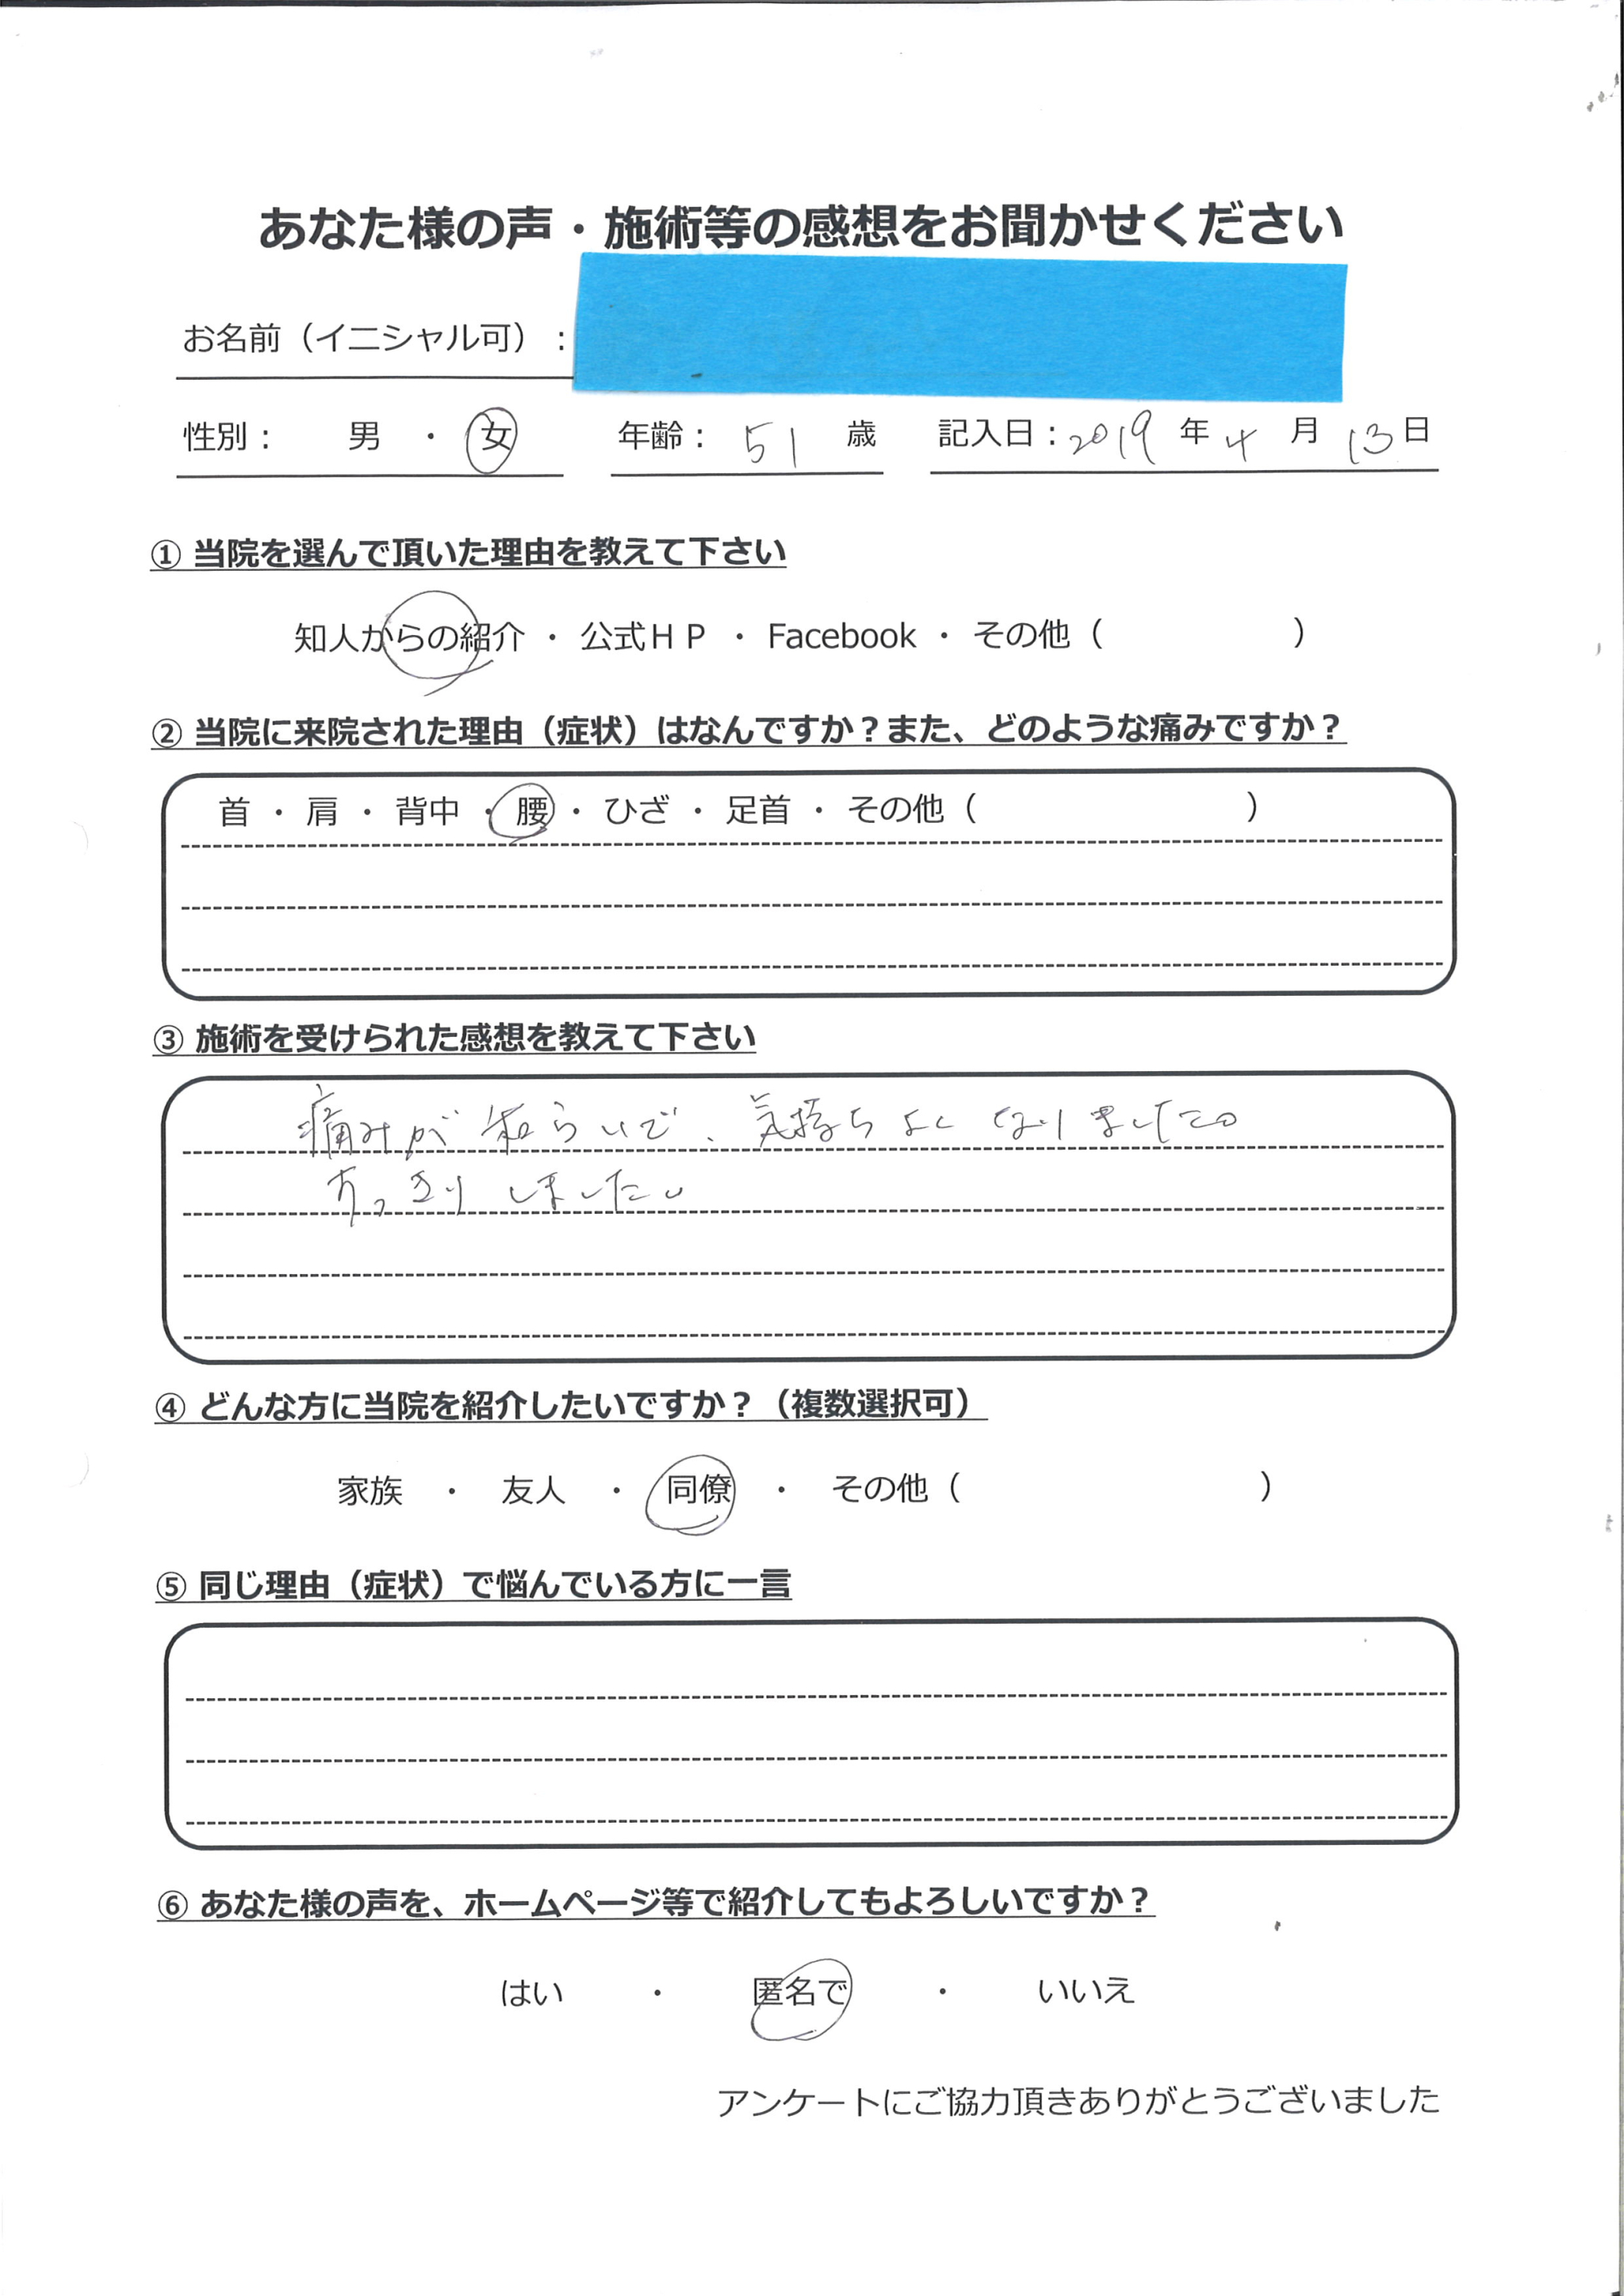 あなた様の声・施術等の感想をお聞かせください
お名前（イニシャル可）：
性別： 男 ・ 女 年齢： 51 歳 記入日：2019 年 4 月 13 日
① 当院を選んで頂いた理由を教えて下さい
知人からの紹介 ・ 公式ＨＰ ・ Facebook ・ その他（ ）
② 当院に来院された理由（症状）はなんですか？また、どのような痛みですか？
首 ・ 肩 ・ 背中 ・ 腰 ・ ひざ ・ 足首 ・ その他（ ）
③ 施術を受けられた感想を教えて下さい
痛みが和らいで、気持ちよくなりました。
すっきりしました。
④ どんな方に当院を紹介したいですか？（複数選択可）
家族 ・ 友人 ・ 同僚 ・ その他（ ）
⑤ 同じ理由（症状）で悩んでいる方に一言
⑥ あなた様の声を、ホームページ等で紹介してもよろしいですか？
はい ・ 匿名で ・ いいえ
アンケートにご協力頂きありがとうございました